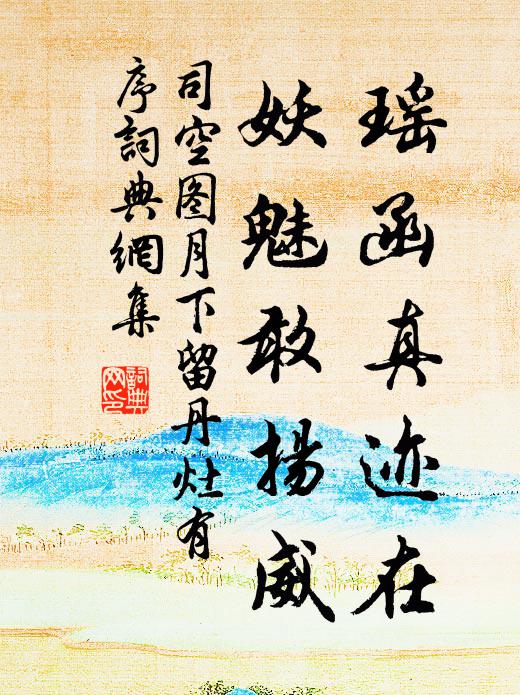 瑶函真迹在
妖魅敢揚威
司空图月下留丹灶有
序詞典網集
詞典网印